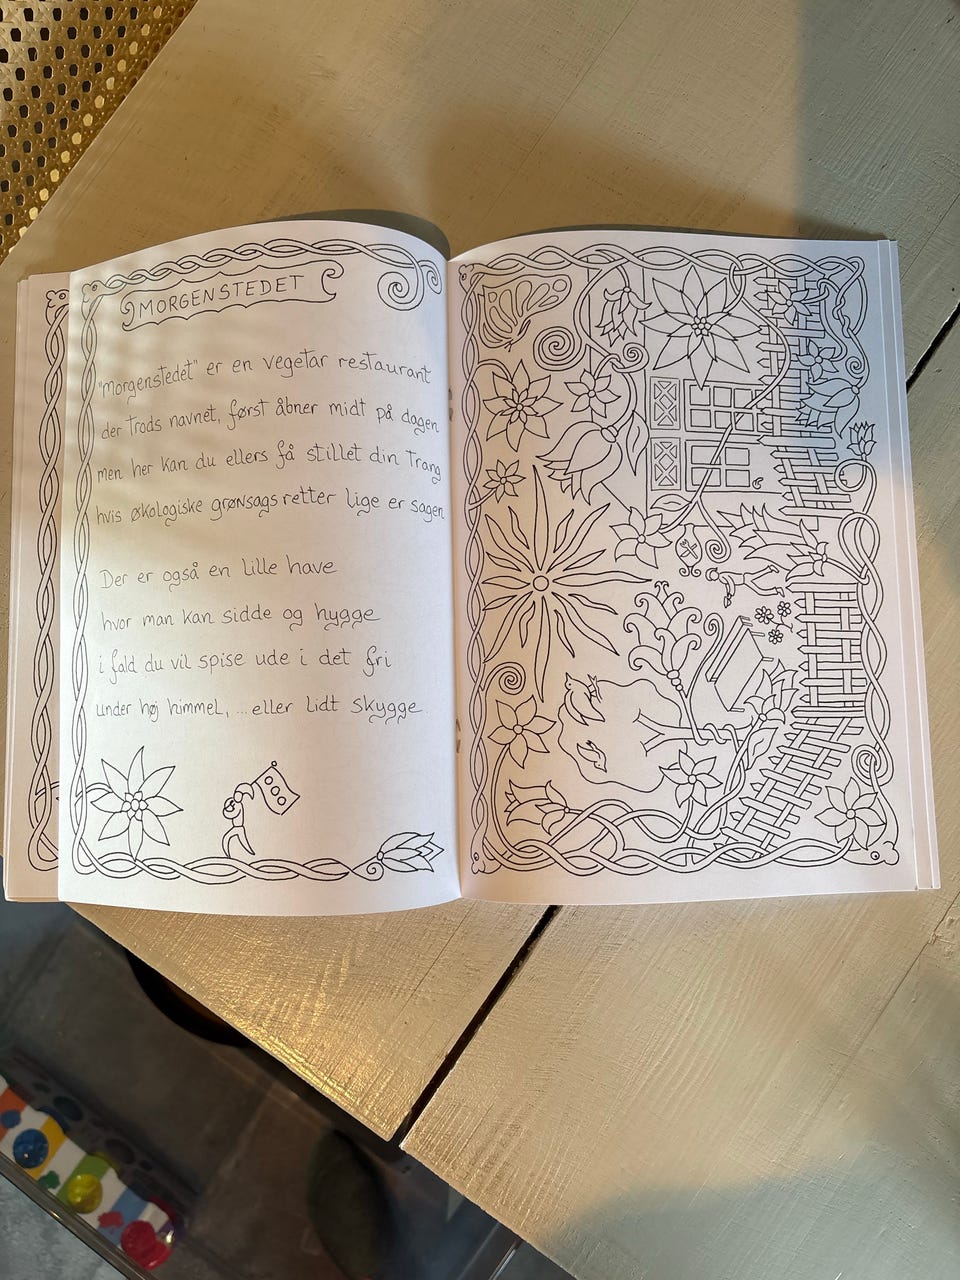 MORGENSTEDET
"morgenstedet" er en vegetar restaurant
der trods navnet, først åbner midt på dagen
men her kan du ellers få stillet din trang
hvis økologiske grønsagsretter lige er sagen
Der er også en lille have
hvor man kan sidde og hygge
i fald du vil spise ude i det fri
under høj himmel, ... eller lidt skygge.